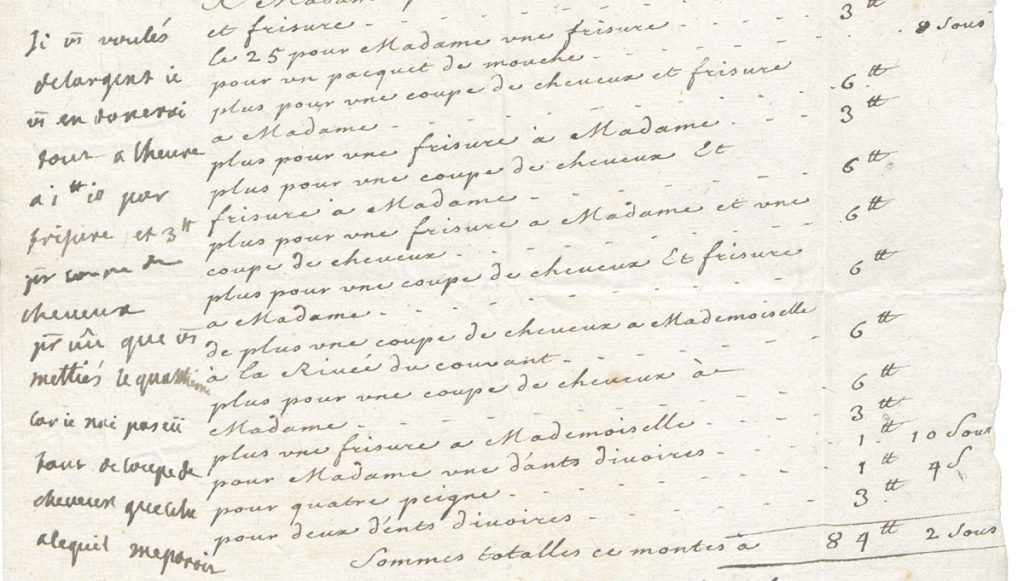 Si vs voulés
de largent ie
vs en donerai
tout a lheure
a 1 tt 10 par
frisure et 3 tt
pr coupe de
cheveux
pr que vs
mettiés le quantieme
car ie nai pas eü
tant de coupe de
cheveux que cela
a le quil me paroit
a Madame
et frisure - - - - 3 tt
le 25 pour Madame vne frisure
pour vn pacquet de mouche - - - - 8 sous
plus pour vne coupe de cheveux et frisure
a Madame - - - - 6 tt
plus pour vne frisure à Madame - - - - 3 tt
plus pour vne coupe de cheveux Et
frisure à Madame - - - - 6 tt
plus pour vne frisure a Madame et vne
coupe de cheveux - - - - 6 tt
plus pour vne coupe de cheveux Et frisure
a Madame - - - - 6 tt
de plus vne coupe de cheveux a Mademoiselle
à la Rivée du couvant - - - - 6 tt
plus pour vne coupe de cheveux à
Madame - - - - 6 tt
plus vne frisure a Mademoiselle - - - - 3 tt
pour Madame vne d'ants divoires - - - - 1 tt 10 sous
pour quatre peigne - - - - 1 tt 4 s
pour deux d'ents divoires - - - - 3 tt
Sommes totalles ce montes à 84 tt 2 sous